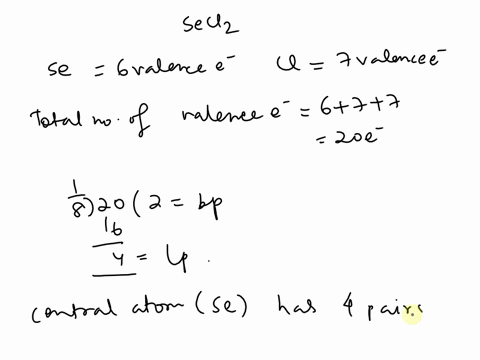 SeCl2
Se = 6 valence e⁻ Cl = 7 valence e⁻
Total no. of valence e⁻ = 6+7+7
= 20e⁻
1
8)20(2 = bp
16
4 = lp.
central atom (Se) has 4 pairs